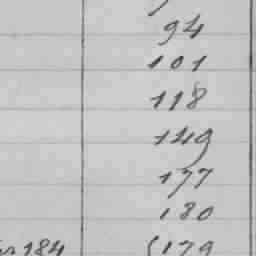 94
101
118
149
177
180
184 (179